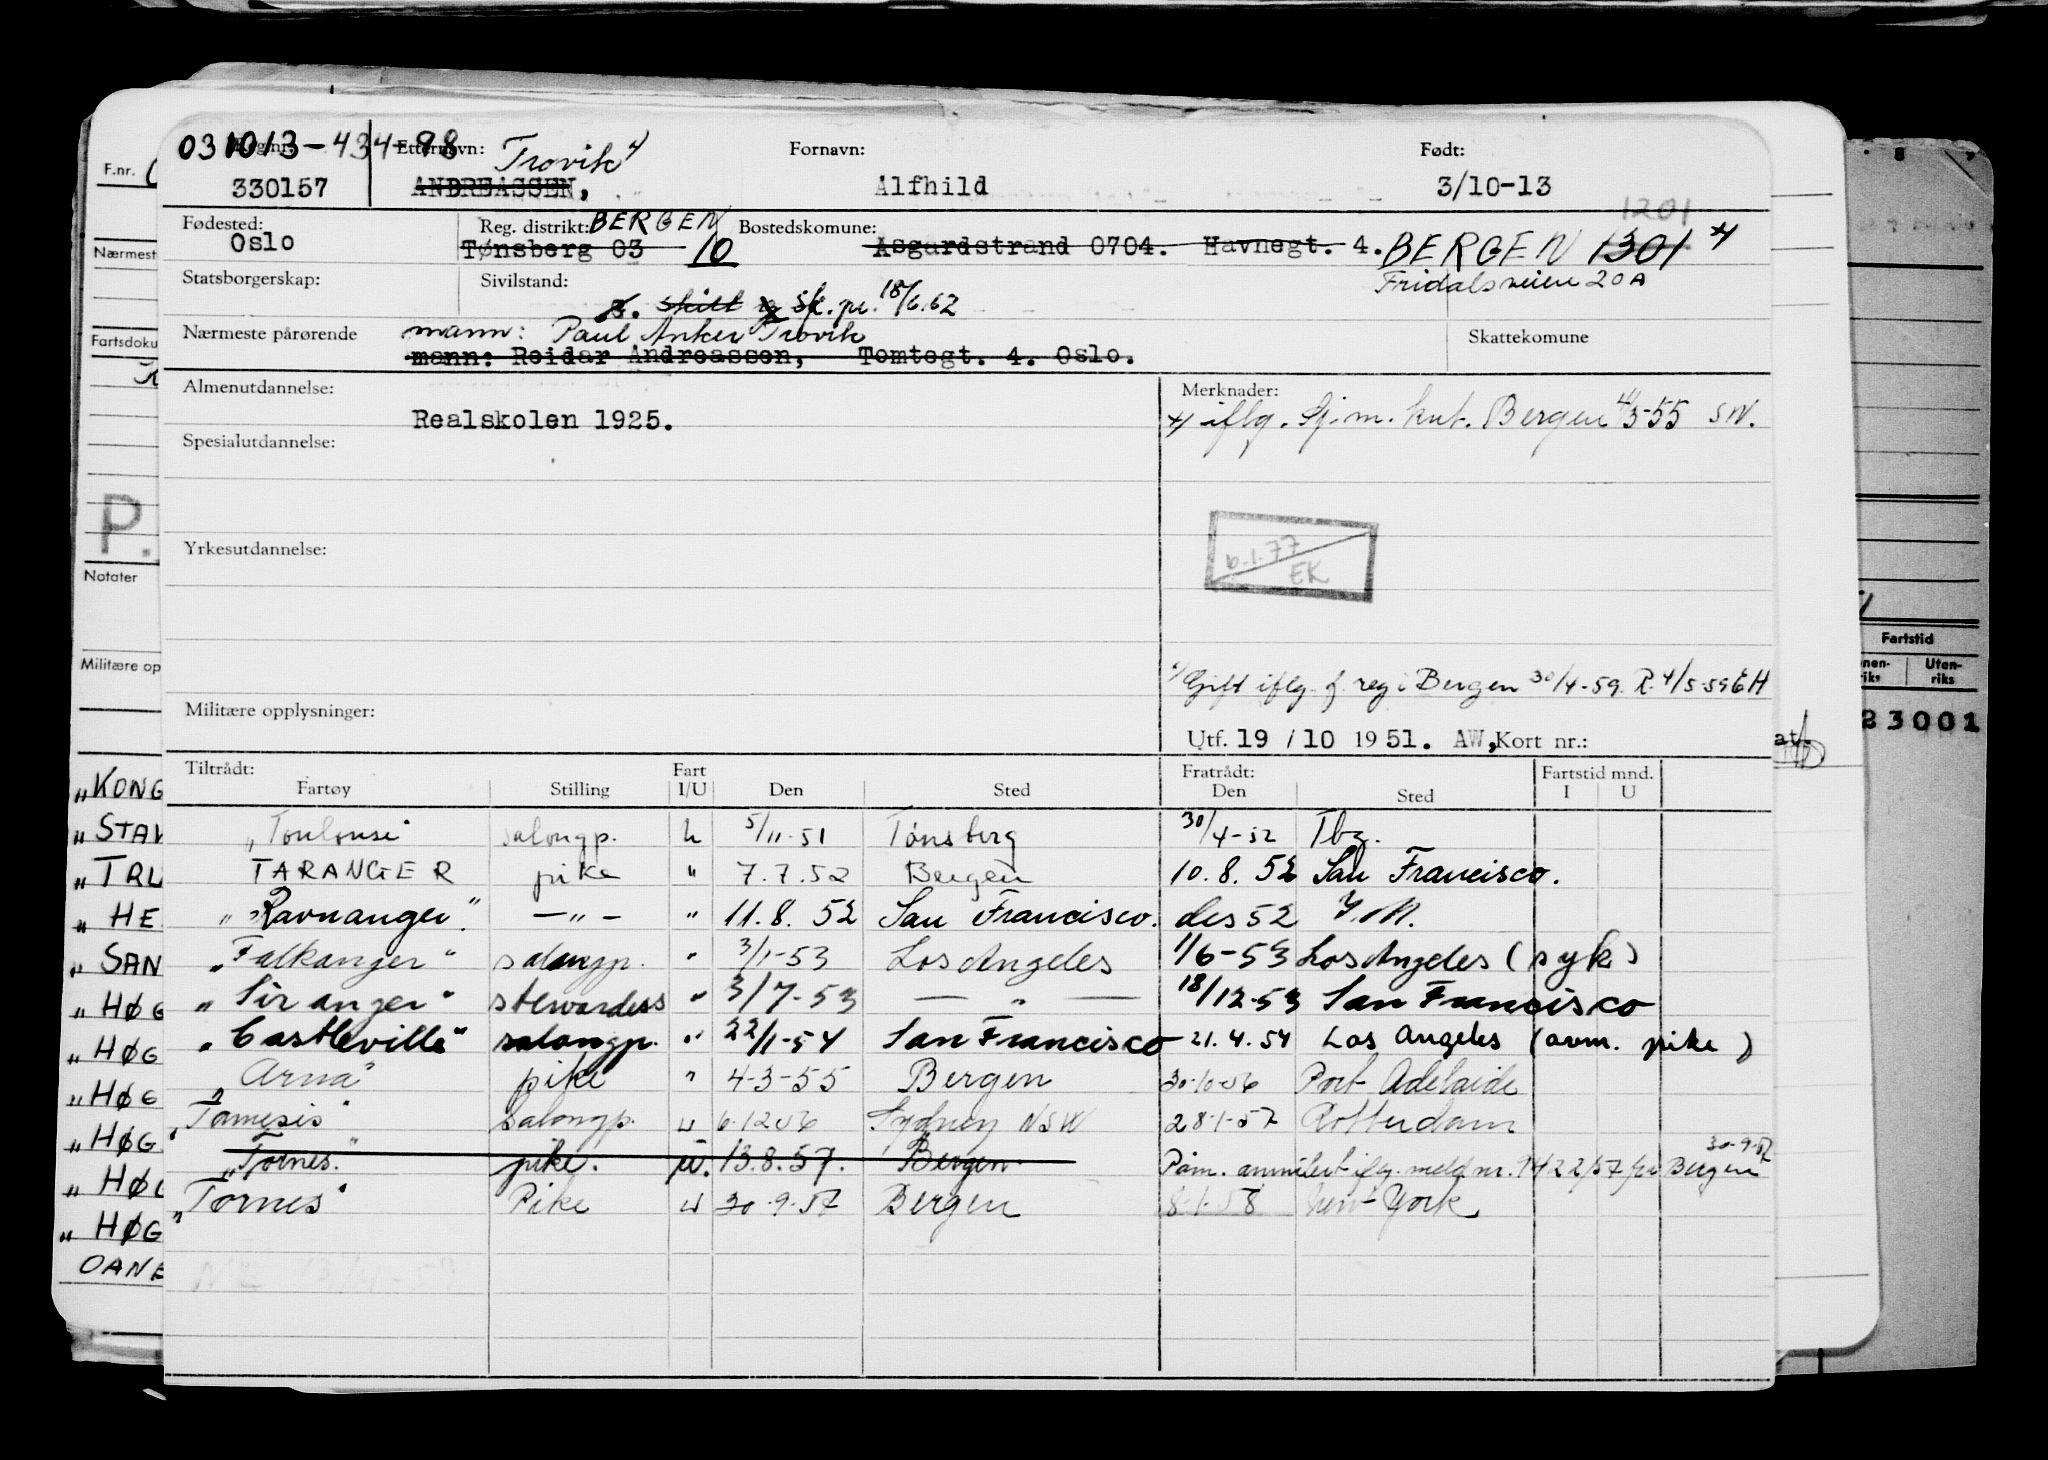 031013-434-98
Reg.nr. Etternavn: Trovik x) Fornavn: Født:
330157 ANDREASSEN, Alfhild 3/10-13
Fødested: Reg. distrikt: BERGEN Bostedskomune: 1201
Oslo Tønsberg 03 10 Åsgårdstrand 0704. Havnegt. 4. BERGEN 1301 x)
Statsborgerskap: Sivilstand: Fridalsveien 20A
g. skilt g sk. pr. 18/6.62
Nærmeste pårørende mann: Paul Anker Trovik Skattekomune
mann: Reidar Andreassen, Tomtegt. 4. Oslo.
Almenutdannelse: Merknader:
Realskolen 1925. x) iflg. Sj.m. knt. Bergen 4/3-55 SN.
Spesialutdannelse:
Yrkesutdannelse:
6.1.77
EK
Gift iflg. f. reg i Bergen 30/4-59. R. 4/5-59 EH
Militære opplysninger:
Utf. 19 / 10 1951. AW, Kort nr.:
Tiltrådt: Fart Fratrådt: Fartstid mnd.
Fartøy Stilling I/U Den Sted Den Sted I U
"Toulouse" salongp. u 5/11-51 Tønsberg 30/4-52 Tbg.
TARANGER pike " 7.7.52 Bergen 10.8.52 San Francisco.
"Ravnanger" —"— " 11.8.52 San Francisco. des 52
"Falkanger" salongp. " 3/1-53 Los Angeles 1/6-53 Los Angeles (syk)
"Siranger" stewardess " 3/7-53 — " — 18/12-53 San Francisco
"Castleville" salongp. " 22/1-54 San Francisco 21.4.54 Los Angeles (avm. pike)
"Arna" pike " 4-3-55 Bergen 30-10-56 Port Adelaide
"Tamesis" Salongp. u 6.12.56 Sydney NSW 28-1-57 Rotterdam
"Tornes." pike. u. 13.8.57. Bergen. Påm. annulert iflg. meld nr. 9422/57 fra Bergen 30-9-57
"Tornes" Pike u 30-9-57 Bergen 8-1-58 New-York
F.nr.
Nærmest
Fartsdoku
P.
Notater
Militære op
"KONG
"STAV
"TRU
"HE
"SAN
"HØG
"HØG
"HØG
"HØG
"HØG
"HØG
DANE
Fartstid
nen-
riks
Uten-
riks
23001